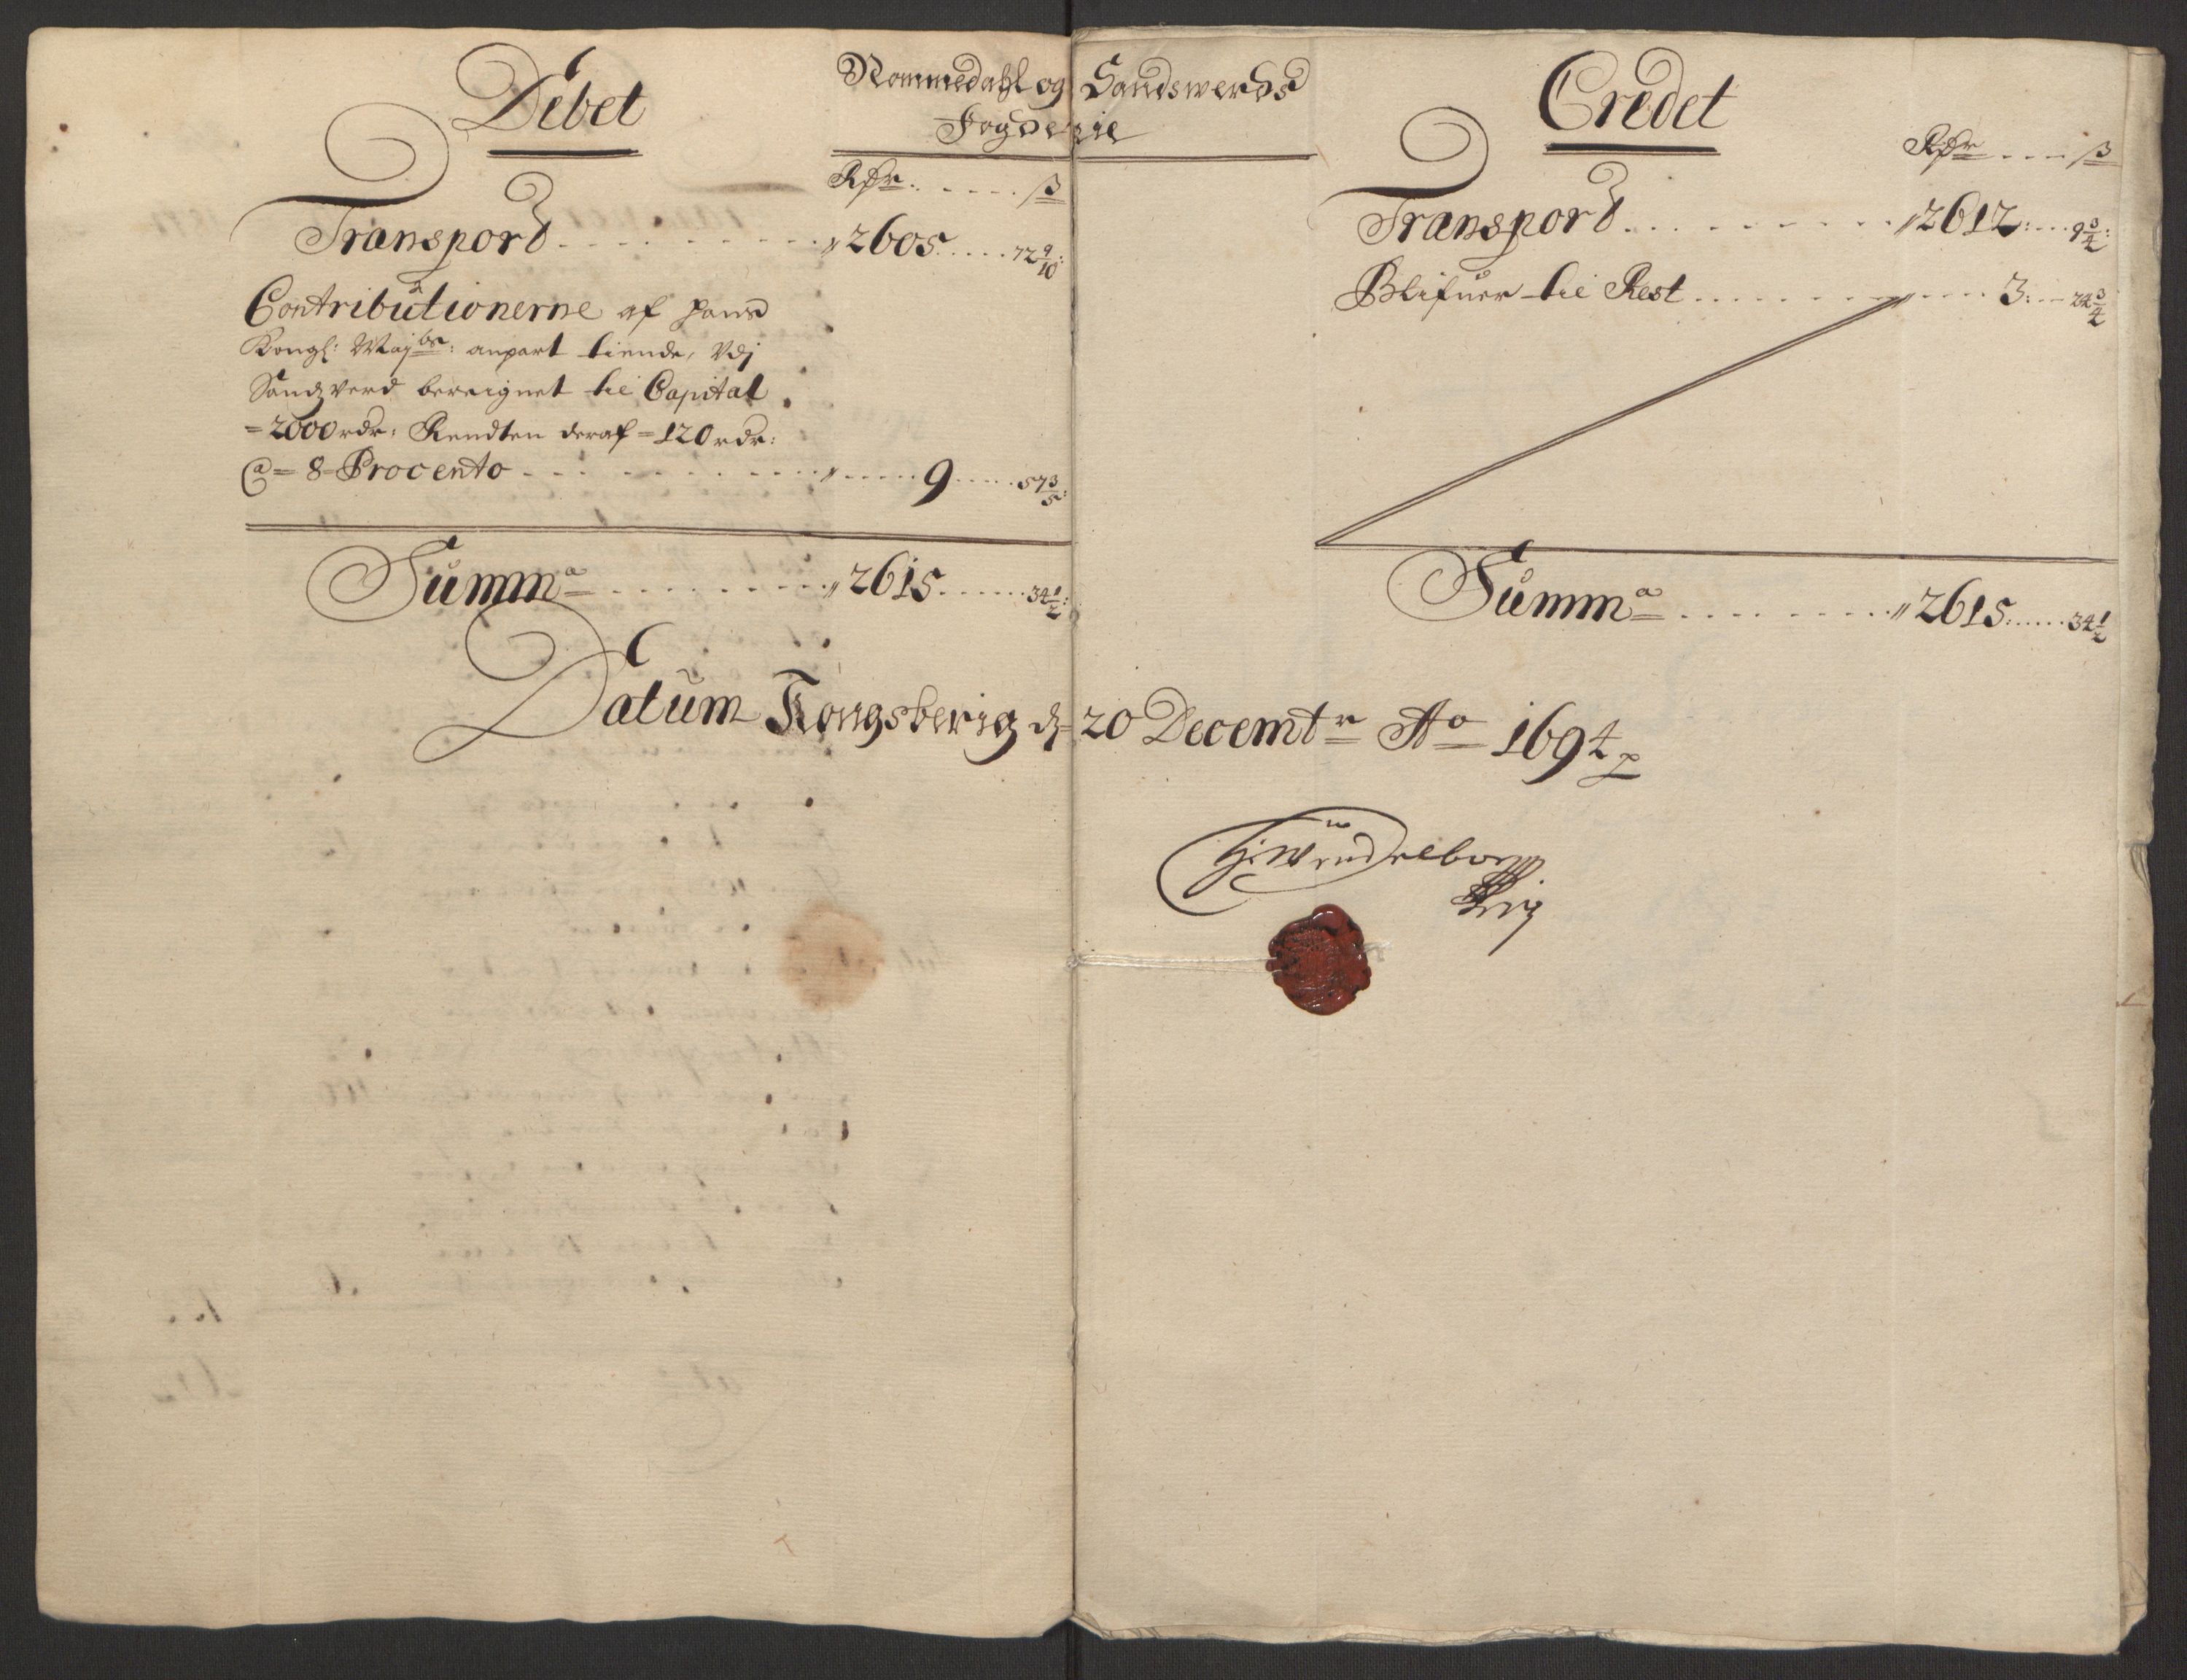 Debet
Nommedahl og Sandswerds
Fogderie
Rdr. . . . . . ß
Transport . . . . . . . . . . „ 2605 . . . . . 72 9/10:
Contributionerne af hans
Kongl: Mayts: anpart tiende, Vdj
Sandzverd bereignet til Capital
=2000 rdr: Rendten deraf =120 rdr:
@ = 8 = Procento . . . . . . . . „ . . . . . 9 . . . . . 57 3/5:
Summa . . . . . . . . . „ 2615 . . . . . . 34 1/2:
Credet
Rdr . . . . ß
Transport . . . . . . . . . „ 2612: . . . 9 3/4:
Blifuer til Rest . . . . . . . . . „ . . . . 3: . . 24 3/4
Summa . . . . . . . . . „ 2615: . . . . . 34 1/2
Datum Kongsberig d. 20 Decembr Ao 1694 p
H: Wendelboe